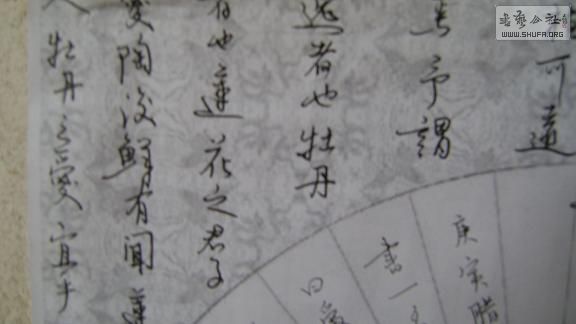 可遠
予謂
逸者也牡丹
者也蓮花之君子
愛陶後鮮有聞蓮
牡丹之愛宜乎
庚寅腊
書一
曰愛
書藝公社
WWW.SHUFA.ORG